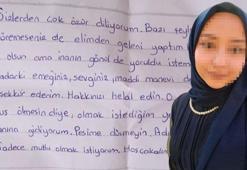 Sizlerden çok özür diliyorum. Bazı şeyl
göremeseniz de elimden geleni yaptım.
olsun ama inanın gönül de yoruldu istem
kadarki emeğiniz, sevginiz, maddi manevi de
şekkür ederim. Hakkınızı helal edin. O
us ölmesin diye, olmak istediğim y
anına gidiyorum. Peşime düşmeyin. Adı
Sadece mutlu olmak istiyorum. Hoşçakalın